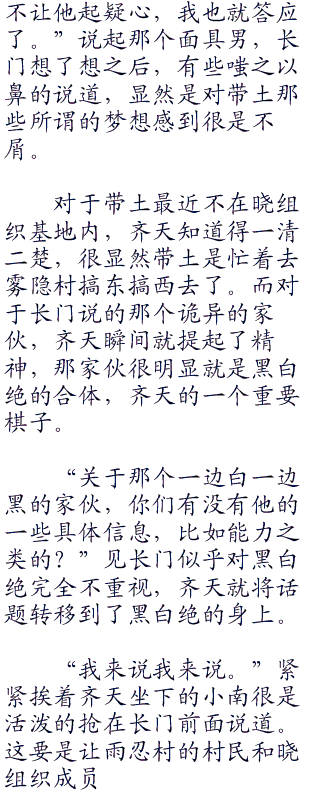 不让他起疑心，我也就答应
了。”说起那个面具男，长
门想了想之后，有些嗤之以
鼻的说道，显然是对带土那
些所谓的梦想感到很是不
屑。
对于带土最近不在晓组
织基地内，齐天知道得一清
二楚，很显然带土是忙着去
雾隐村搞东搞西去了。而对
于长门说的那个诡异的家
伙，齐天瞬间就提起了精
神，那家伙很明显就是黑白
绝的合体，齐天的一个重要
棋子。
“关于那个一边白一边
黑的家伙，你们有没有他的
一些具体信息，比如能力之
类的？”见长门似乎对黑白
绝完全不重视，齐天就将话
题转移到了黑白绝的身上。
“我来说我来说。”紧
紧挨着齐天坐下的小南很是
活泼的抢在长门前面说道。
这要是让雨忍村的村民和晓
组织成员